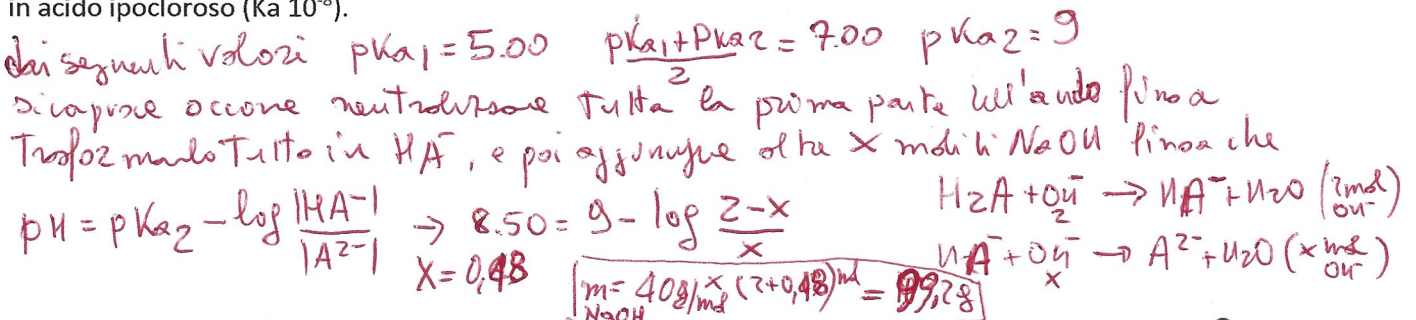 in acido ipocloroso (Ka 10⁻⁸).
dai seguenti valori pKa1 = 5.00 pKa1+pKa2/2 = 7.00 pKa2 = 9
si capisce occorre neutralizzare tutta la prima parte dell'acido fino a
trasformarlo tutto in HA⁻, e poi aggiungere altre x moli di NaOH fino a che
pH = pKa2 - log |HA⁻|/|A²⁻| → 8.50 = 9 - log 2-x/x
H2A + OH⁻ → HA⁻ + H2O (2mol OH⁻)
2
HA⁻ + OH⁻ → A²⁻ + H2O (x mol OH⁻)
x
x = 0,48
m NaOH = 40g/mol x (2+0,48) mol = 99,2g